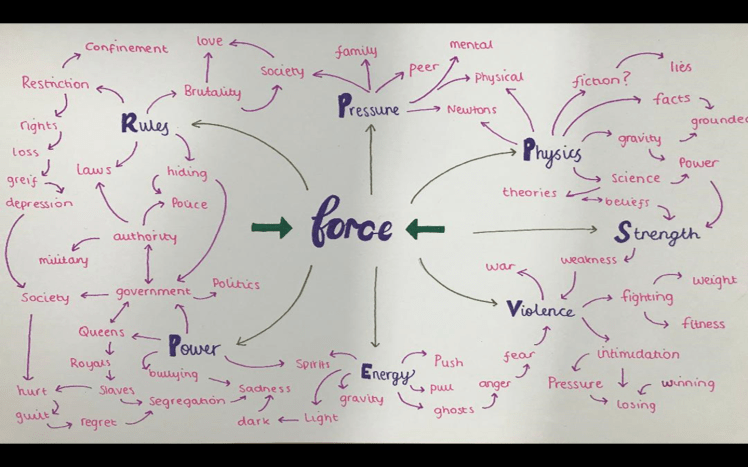 Confinement
love
family
mental
Restriction
Brutality
society
peer
Physical
fiction?
lies
Pressure
Newtons
facts
grounded
rights
Rules
Physics
gravity
loss
Laws
hiding
Power
greif
theories
science
beliefs
depression
Police
force
Strength
authority
military
war
weakness
Society
government
Politics
fighting
weight
Violence
fitness
Queens
Power
Royals
bullying
Spirits
Energy
Push
fear
intimidation
hurt
slaves
Segregation
Sadness
gravity
pull
anger
Pressure
winning
guilt
regret
dark
Light
ghosts
losing